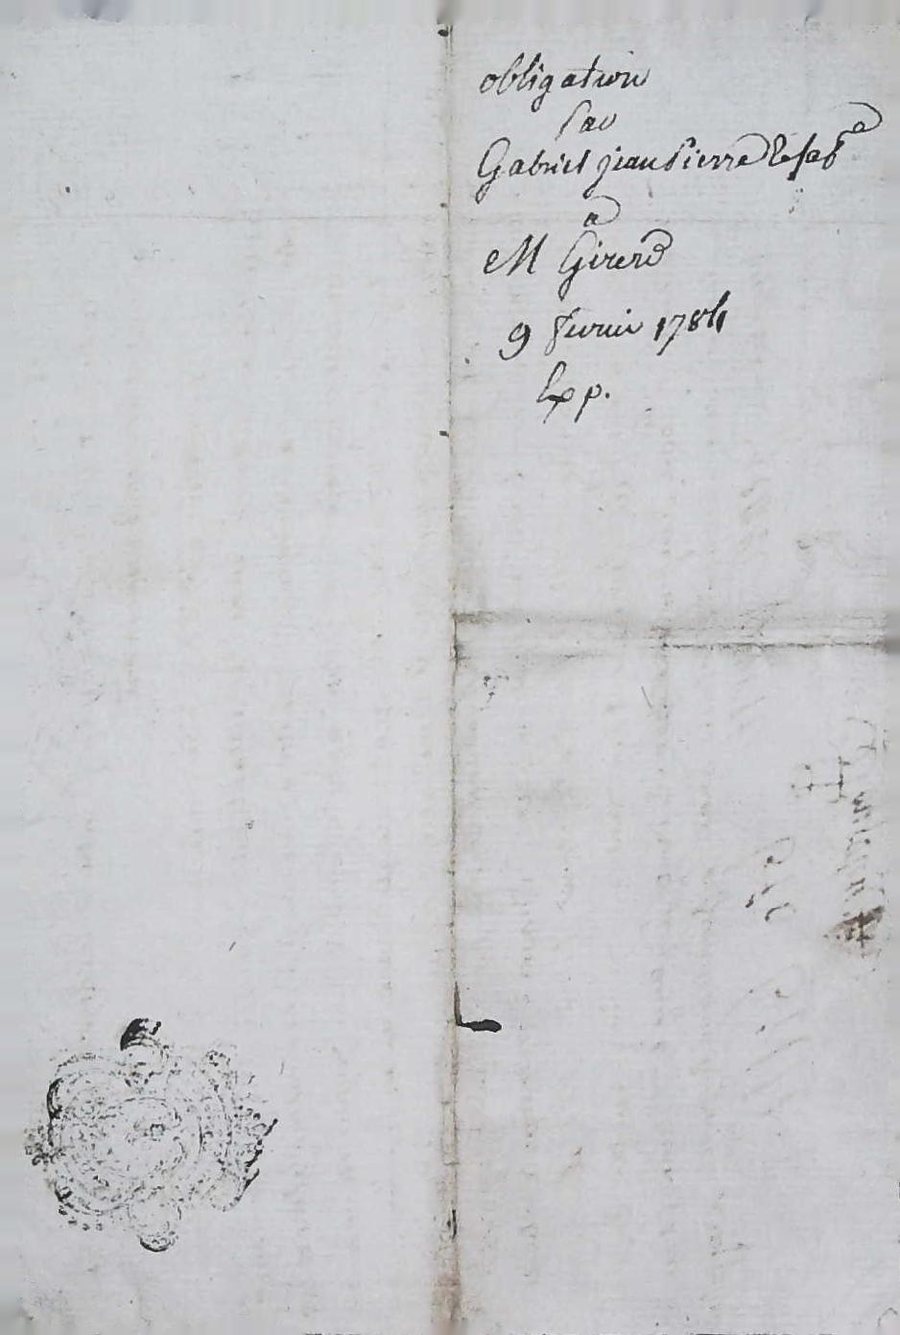 obligation
par
Gabriel jean Pierre
a
M Girerd
9 fevrier 1784
Exp.